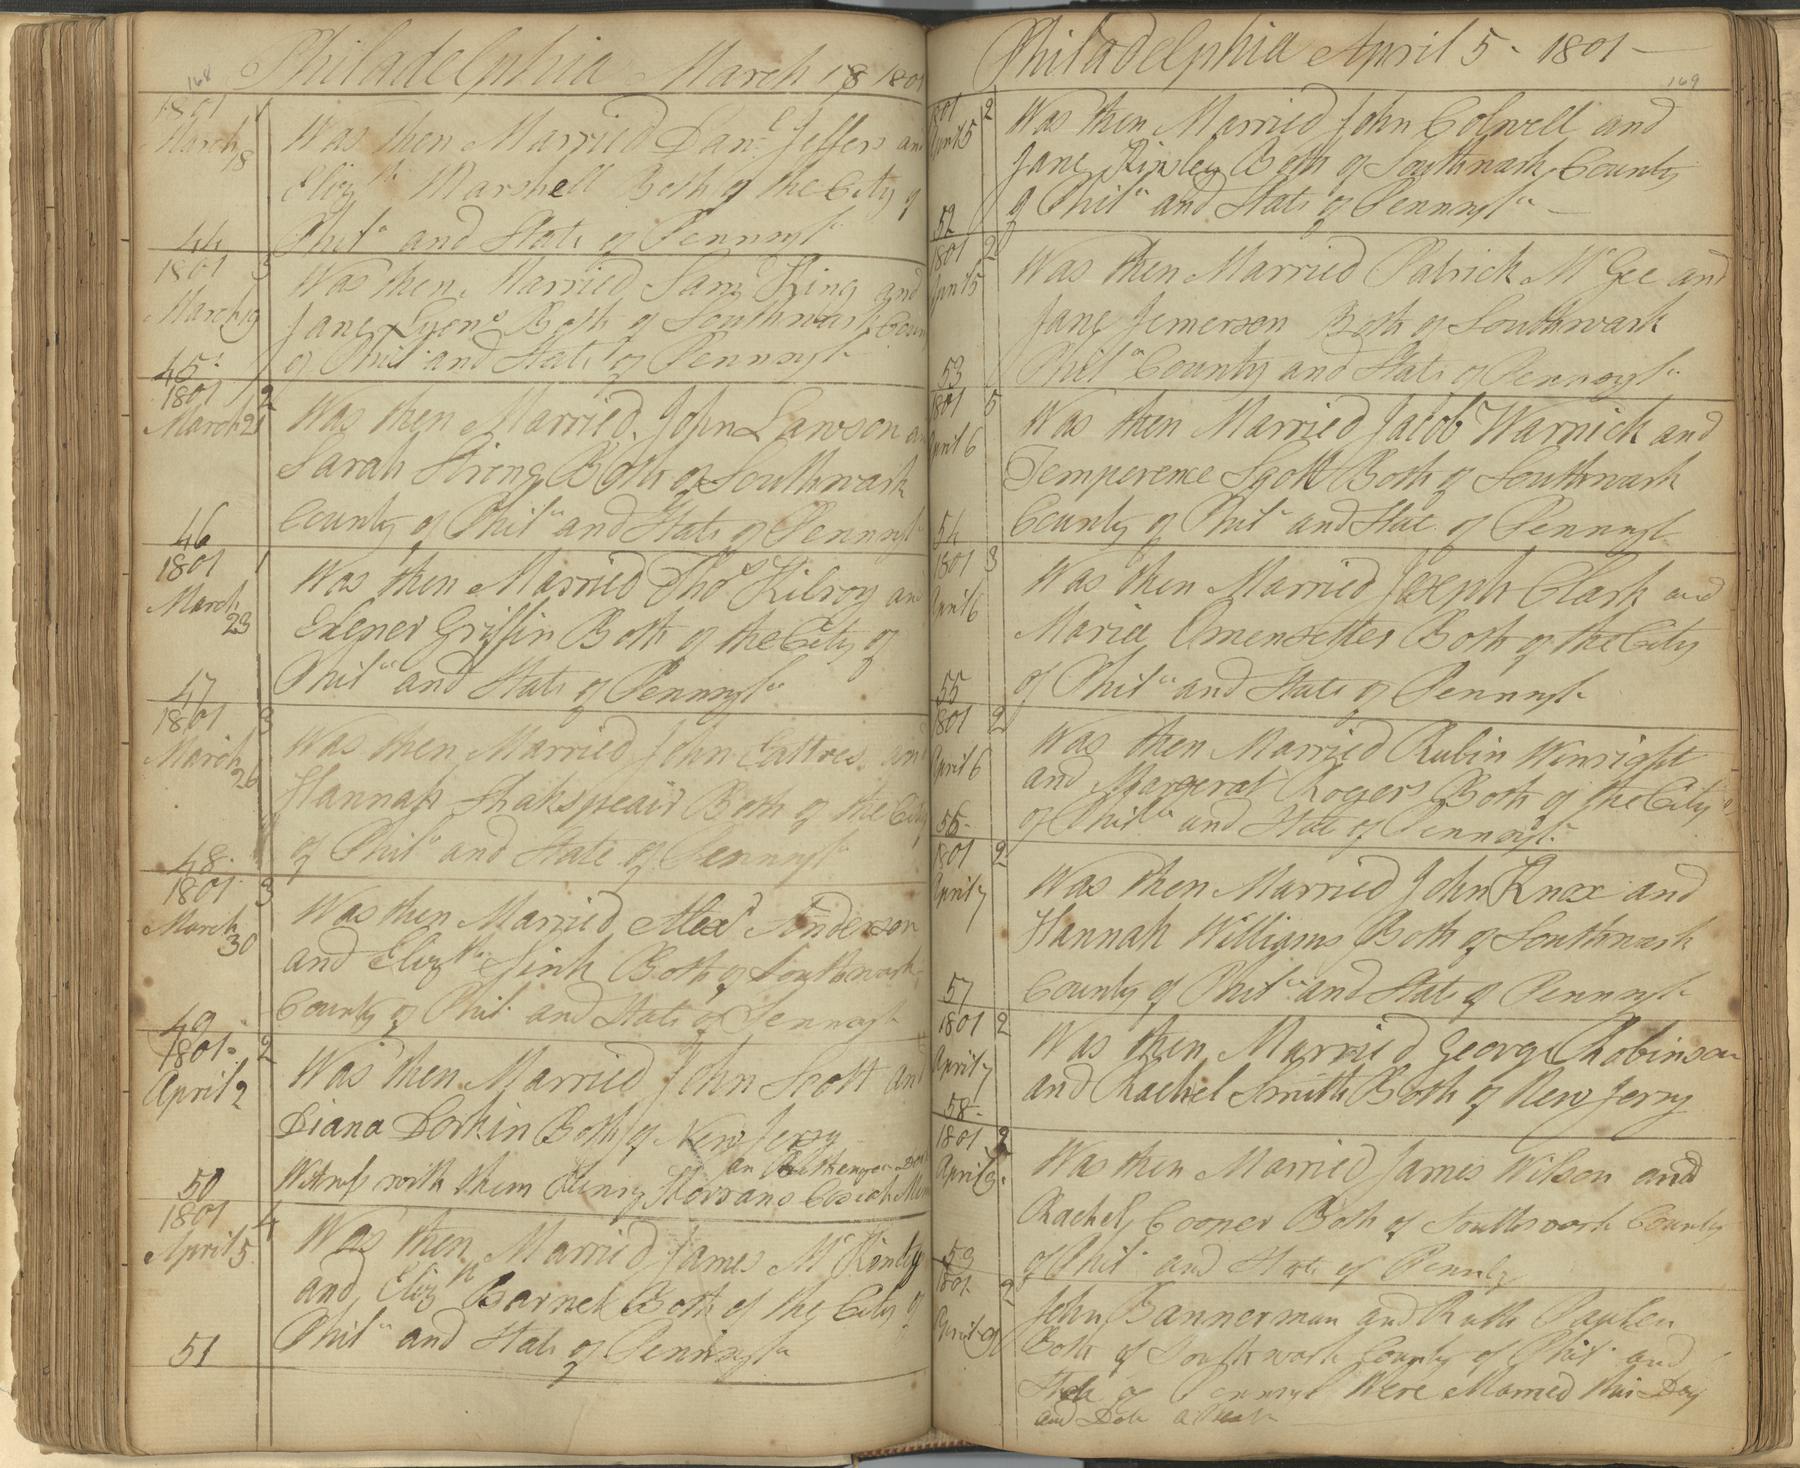 168
Philadelphia March 18 1801
1801 1
March 18
Was then Married Danl Jeffers and
Elizth Marshell Both of the City of
Phila and State of Pennsyla
44
1801 3
March 19
Was then Married Saml King and
Jane Lyons Both of Southwark Coun
of Phila and State of Pennsyla
45
1801 2
March 21
Was then Married John Lawson an
Sarah Strong Both of Southwark
County of Phila and State of Pennsyl
46
1801 1
March 23
Was then Married Thos Kilroy and
Griffin Both of the City of
Phila and State of Pennsyla
47
1801 3
March 26
Was then Married John and
Hannah Shakspeair Both of the City
of Phila and State of Pennsyla
48
1801 3
March 30
Was then Married Alexd Anderson
and Elizth Both of Southwark
County of Phila and State of Pennsyl
49
1801 2
April 2
Was then Married John Scott and
Diana Dorkin Both of New Jersy
an
Witness with them Henry
50
1801 4
April 5
Was then Married James McKinley
and Elizth Barnet Both of the City of
Phila and State of Pennsyla
51
Philadelphia April 5 - 1801 -
169
1801 2
April 5
Was then Married John Colwell and
Jane Kinsley Both of Southwark County
of Phila and State of Pennsyla
52
1801 2
April 5
Was then Married Patrick McGee and
Jane Jemerson Both of Southwark
Phila County and State of Pennsyla
53
1801 5
April 6
Was then Married Jacob Warnick and
Temperence Scott Both of Southwark
County of Phila and State of Pennsyl
54
1801 3
April 6
Was then Married Joseph Clark and
Maria Omensetter Both of the City
of Phila and State of Pennsyla
55
1801 2
April 6
Was then Married Rubin Winright
and Margeret Rogers Both of the City
of Phila and State of Pennsyla
56
1801 2
April 7
Was then Married John Knox and
Hannah Williams Both of Southwark
County of Phila and State of Pennsyla
57
1801 2
April 7
Was then Married George Robinson
and Rachel Smith Both of New Jersy
58
1801 2
April 9
Was then Married James Wilson and
Rachel Cooper Both of Southwark County
of Phila and State of Pennsy
59
1801 2
April 9
John Bannerman and Ruth
Both of Southwark County of Phila and
State of Pennsyl Were Married this Day
and Date